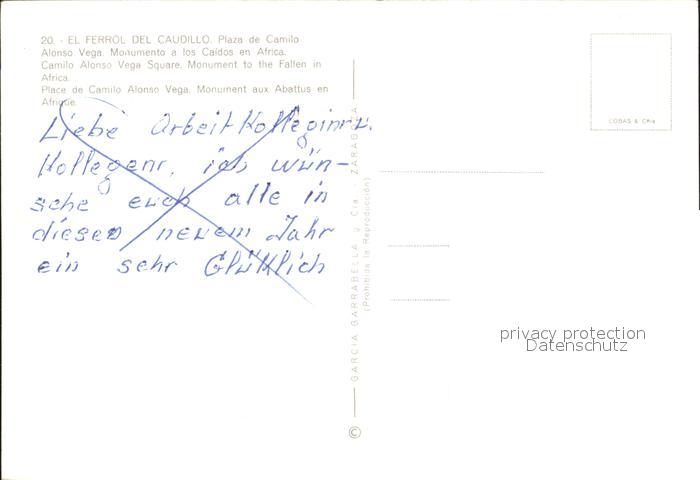 20. - EL FERROL DEL CAUDILLO. Plaza de Camilo
Alonso Vega. Monumento a los Caídos en Africa.
Camilo Alonso Vega Square. Monument to the Fallen in
Africa.
Place de Camilo Alonso Vega. Monument aux Abattus en
Afrique.
Liebe Arbeit Kolleginn u.
Kollegenr, ich wün-
sche euch alle in
diesen neuem Jahr
ein sehr Glüklich
GARCIA GARRABELLA y Cía. - ZARAGOZA
(Prohibida la Reproducción)
©
COBAS & Cñía
privacy protection
Datenschutz